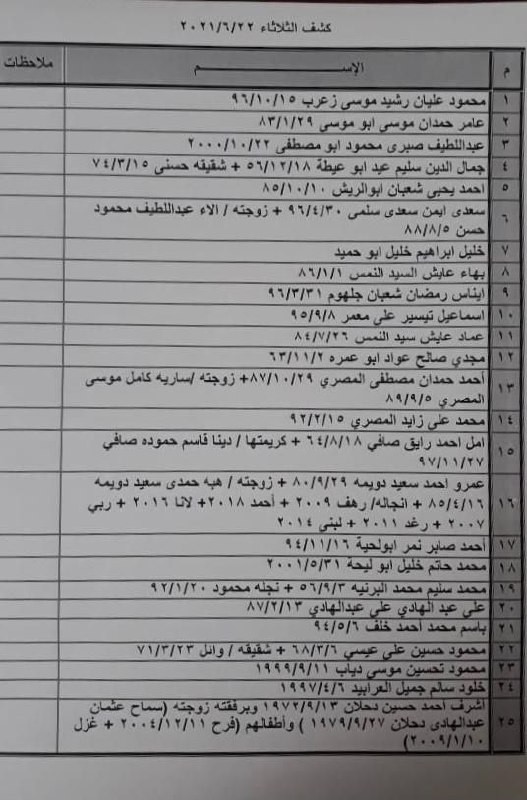 كشف الثلاثاء ٢٠٢١/٦/٢٢
م الإســـم ملاحظات
١ محمود عليان رشيد موسى زعرب ٩٦/١٠/١٥
٢ عامر حمدان موسى ابو موسى ٨٣/١/٢٩
٣ عبداللطيف صبرى محمود ابو مصطفى ٢٠٠٠/١٠/٢٢
٤ جمال الدين سليم عيد ابو عيطة ٥٦/١٢/١٨ + شقيقه حسنى ٧٤/٣/١٥
٥ احمد يحيى شعبان ابوالريش ٨٥/١٠/١٠
٦ سعدى ايمن سعدى سلمى ٩٦/٤/٣٠ + زوجته / الاء عبداللطيف محمود
حسن ٨٨/٨/٥
٧ خليل ابراهيم خليل ابو حميد
٨ بهاء عايش السيد النمس ٨٦/١/١
٩ ايناس رمضان شعبان جلهوم ٩٦/٣/٣١
١٠ اسماعيل تيسير على معمر ٩٥/٩/٨
١١ عماد عايش سيد النمس ٨٤/٧/٢٦
١٢ مجدي صالح عواد ابو عمره ٦٣/١١/٢
١٣ أحمد حمدان مصطفى المصري ٨٧/١٠/٢٩+ زوجته /ساريه كامل موسى
المصري ٨٩/٩/٥
١٤ محمد على زايد المصري ٩٢/٢/١٥
١٥ امل احمد رايق صافي ٦٤/٨/١٨ + كريمتها / دينا قاسم حموده صافي
٩٧/١١/٢٧
١٦ عمرو احمد سعيد دويمه ٨٠/٩/٢٩ + زوجته / هبه حمدى سعيد دويمه
٨٥/٤/١٦ + انجاله/ رهف ٢٠٠٩ + أحمد ٢٠١٨+ لانا ٢٠١٦ + ربي
٢٠٠٧ + رغد ٢٠١١ + لبنى ٢٠١٤
١٧ أحمد صابر نمر ابولحية ٩٤/١١/١٦
١٨ محمد حاتم خليل ابو ليحة ٢٠٠١/٥/٣١
١٩ محمد سليم محمد البرنيه ٥٦/٩/٣ + نجله محمود ٩٢/١/٢٠
٢٠ على عبد الهادي على عبدالهادي ٨٧/٢/١٣
٢١ باسم محمد أحمد خلف ٩٤/٥/٦
٢٢ محمود حسين على عيسي ٦٨/٣/٦ + شقيقه / وائل ٧١/٣/٢٣
٢٣ محمود تحسين موسى دياب ١٩٩٩/٩/١١
٢٤ خلود سالم جميل العرابيد ١٩٩٧/٤/٦
٢٥ أشرف أحمد حسين دحلان ١٩٧٢/٩/١٣ وبرفقته زوجته (سماح عثمان
عبدالهادى دحلان ١٩٧٩/٩/٢٧ ) وأطفالهم (فرح ٢٠٠٤/١٢/١١ + غزل
٢٠٠٩/١/١٠)